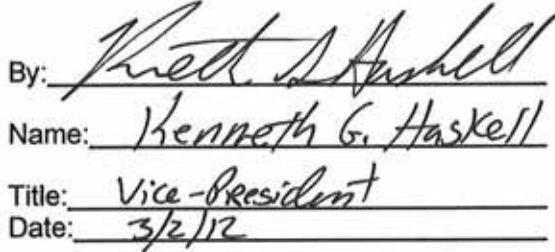 By: Kenneth G. Haskell
Name: Kenneth G. Haskell
Title: Vice-President
Date: 3/2/12